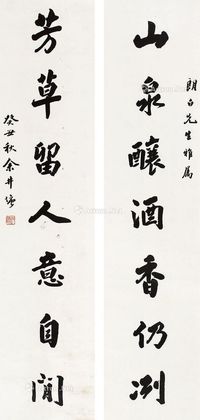 朗白先生雅属
山泉釀酒香仍冽
芳草留人意自閒
癸丑秋余井塘